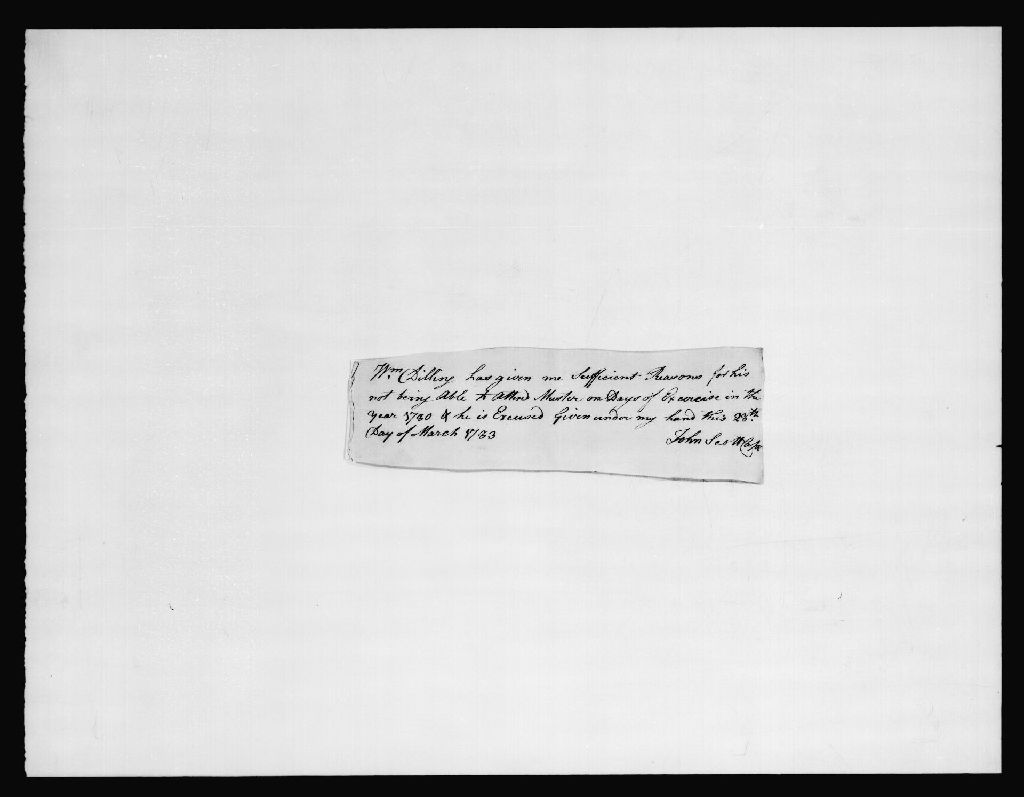 Wm. Dilling has given me Sufficient Reasons for his
not being Able to Attend Muster on Days of Exercise in the
year 1780 & he is Excused Given under my hand this 23th
Day of March 1783
John